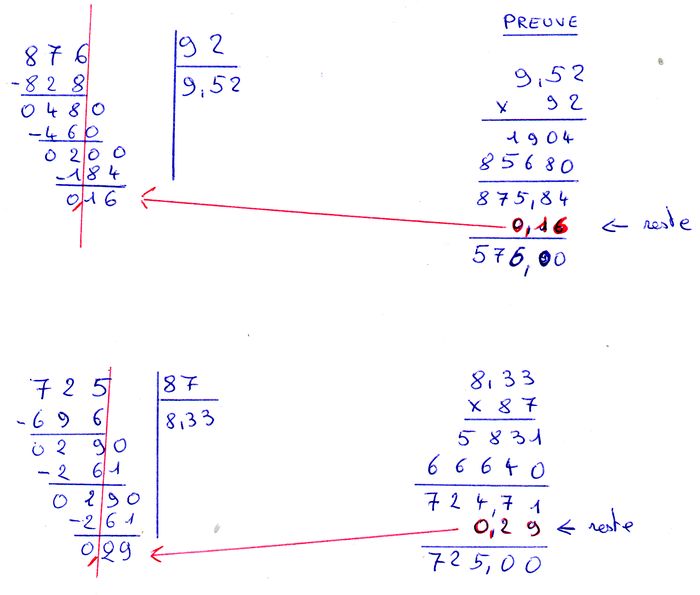 PREUVE
876 | 92
-828 | 9,52
0480
-460
0200
-184
0,16
9,52
x 92
1904
85680
875,84
0,16 ← reste
576,00
725 | 87
-696 | 8,33
0290
-261
0290
-261
0,29
8,33
x 87
5831
66640
724,71
0,29 ← reste
725,00